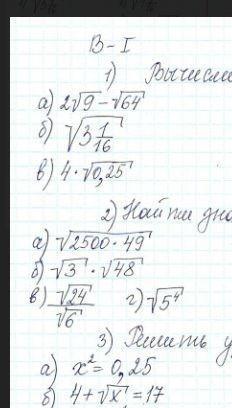 В-I
1) Вычисли
а) 2√9 - √64
б) √3 1/16
в) 4·√0,25
2) Найти зна
а) √2500·49
б) √3 · √48
в) √24/√6 г) √5⁴
3) Решить у
а) x² = 0,25
б) 4+√x = 17